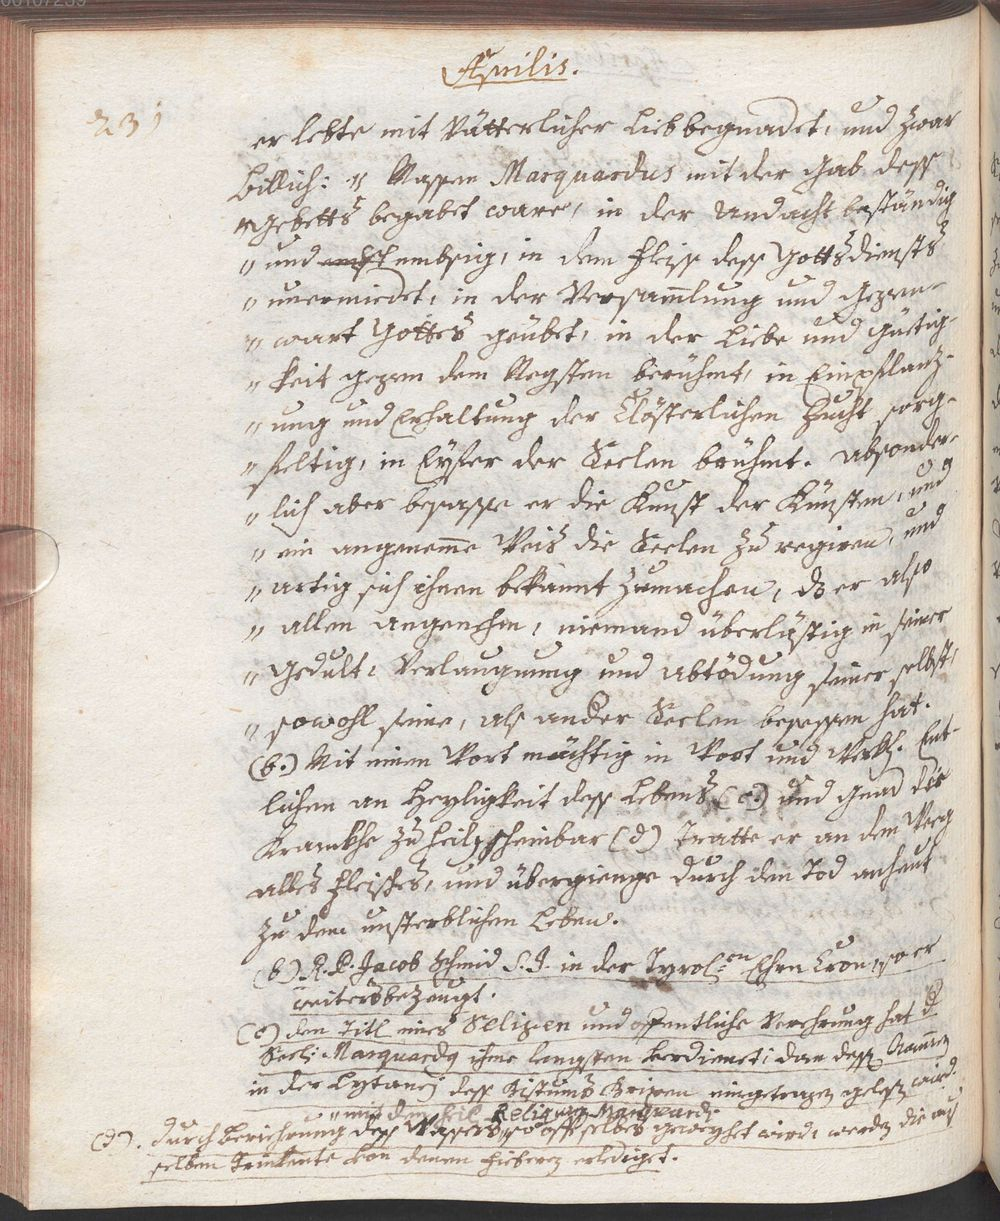 00107239
Aprilis.
23
er lebte mit Vätterlicher Lieb begnadet, und zwar
billich: „ Massen Marquardus mit der Gab dess
„ Gebetts begabet ware, in der Andacht beständig
„ und embsig, in dem Fleiss dess Gottsdiensts
„ unermiedet, in der Versamlung und Gegen-
„ wart Gottes geübet, in der Liebe und Güetig-
„ keit gegen dem Negsten berühmt, in Einpflanz-
„ ung und Erhaltung der Clösterlichen Zucht sorg-
„ feltig, in Eyfer der Seelen brühmt. Absonder-
„ lich aber besasse er die Kunst der Künsten, und
„ ein angenemme Weis die Seelen zu regiren, und
„ artig sich ihnen bekannt zumachen, ds er also
„ allen angenehm, niemand überlästig in seiner
„ Gedult, Verlaugnung und Abtödung seiner selbst,
„ sowohl seine, als ander Seelen besessen hat.
(b.) Mit einem Wort mächtig in Wort und Werkh. Ent-
lichen an Heyligkeit dess Lebens (c) und Gnad die
Krankhe zu heilen scheinbar (d) tratte er an den Weeg
alles Fleisches, und übergienge durch den Tod anheut
zu dem unsterblichen Leben.
(b) R. P. Jacob Schmid S. J. in der Tyrol.en Ehren Cron, so er
weiters bezeugt.
(c) den Titl eines Seligen und offentliche Verehrung hat d
Seel: Marquardg ihme lengsten verdienet; dan dess Nammen
in der Lytaney dess Bistums Brixen eingetragen gelesen wird.
„ mit den heil. Reliquien Marquardi.
(d). durch Beriehrung dess Wassers, so offt selbes geweyhet wird, werden die aus
selben Trinkente von denen Fieberen erlediget.